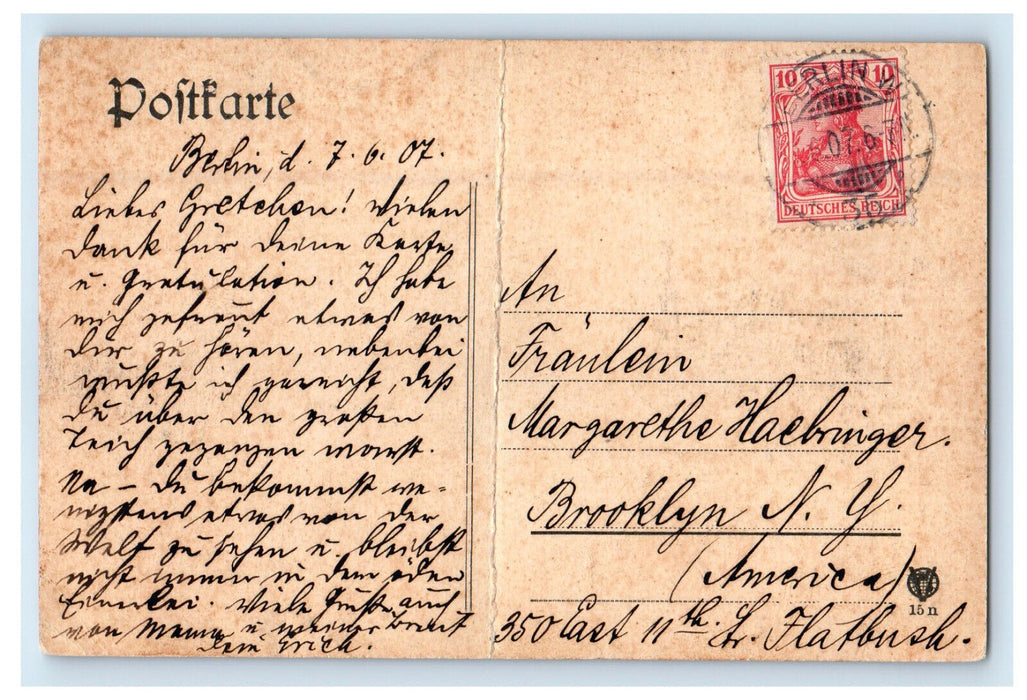 Postkarte
Berlin, d. 7. 6. 07.
Liebes Gretchen! Vielen
Dank für Deine Karte
u. Gratulation. Ich habe
mich gefreut etwas von
Dir zu hören, nebenbei
wußte ich garnicht, daß
Du über den großen
Teich gegangen warst.
Na – Du bekommst we-
nigstens etwas von der
Welf zu sehen u. bleibst
nicht immer in dem öden
Viele Grüße auch
von Mama u. meiner Braut
Dein Erich.
10 10
DEUTSCHES REICH
BERLIN W
07.6.
35
An
Fräulein
Margarethe Haebringer.
Brooklyn N. Y.
(America)
350 East 11th. Str. Flatbush.
15 n